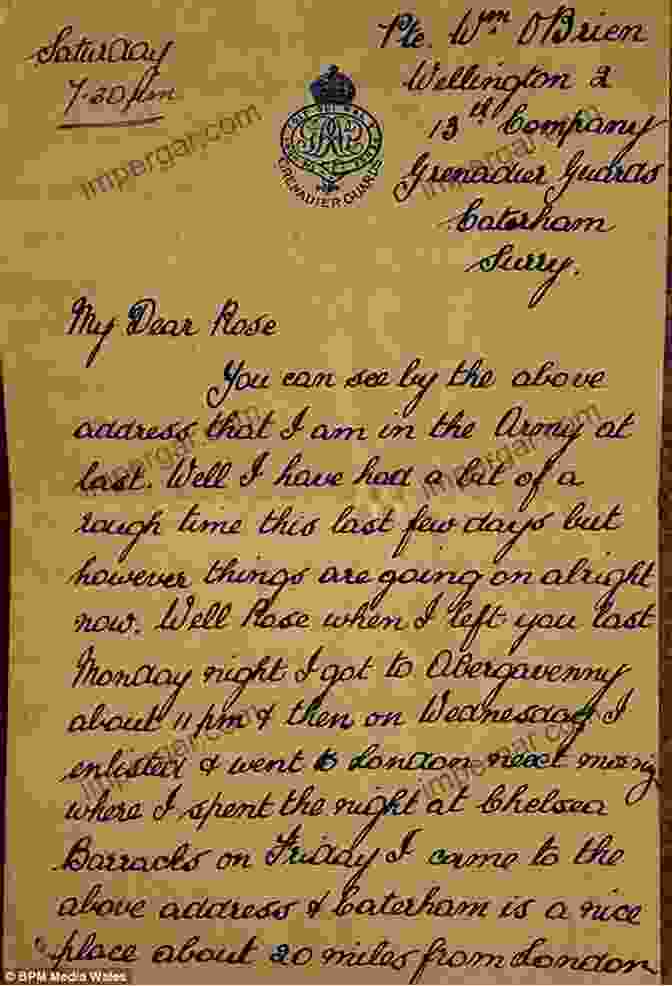 Saturday
7.30 pm
Pte. Wm O'Brien
Wellington 2
13th Company
Grenadier Guards
Caterham
Surry.
GRENADIER GUARDS
My Dear Rose
You can see by the above
address that I am in the Army at
last. Well I have had a bit of a
rough time this last few days but
however things are going on alright
now. Well Rose when I left you last
Monday night I got to Abergavenny
about 11 pm & then on Wednesday I
enlisted & went to London next morng
where I spent the night at Chelsea
Barracks on Friday I came to the
above address & Caterham is a nice
place about 20 miles from London
© BPM Media Wales
impergar.com
impergar.com
impergar.com
impergar.com
impergar.com
impergar.com